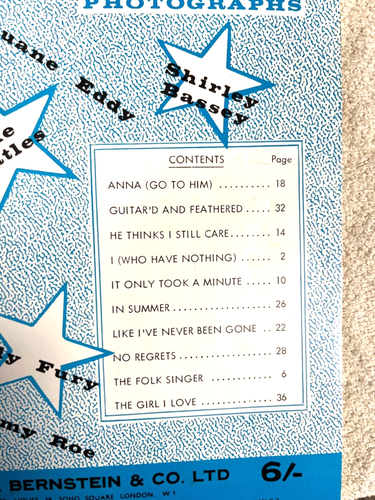 PHOTOGRAPHS
uane Eddy
Shirley
Bassey
e
tles
CONTENTS Page
ANNA (GO TO HIM) .......... 18
GUITAR'D AND FEATHERED ..... 32
HE THINKS I STILL CARE....... 14
I (WHO HAVE NOTHING) ...... 2
IT ONLY TOOK A MINUTE ..... 10
IN SUMMER ................. 26
LIKE I'VE NEVER BEEN GONE .. 22
NO REGRETS ................ 28
THE FOLK SINGER ........... 6
THE GIRL I LOVE ............ 36
ly Fury
my Roe
BERNSTEIN & CO. LTD 6/-
SOHO SQUARE LONDON. W.1